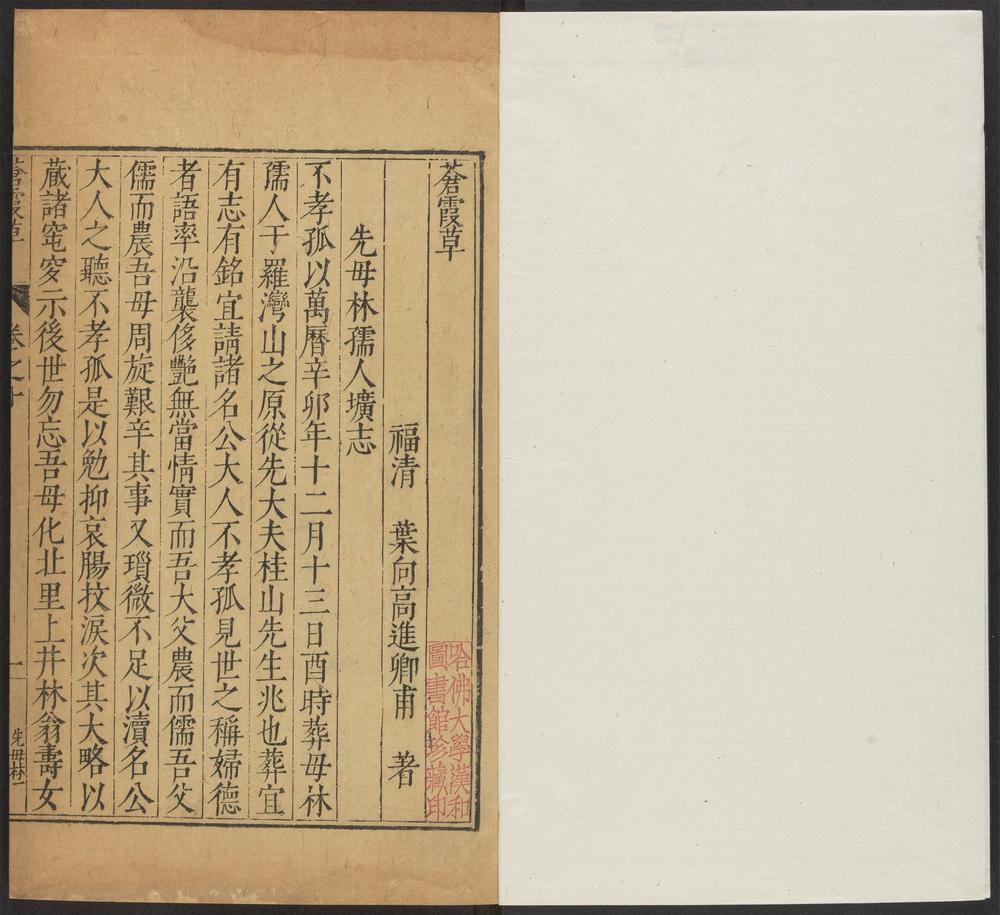 蒼霞草
福清　葉向高進卿甫　著
先母林孺人壙志
不孝孤以萬曆辛卯年十二月十三日酉時葬母林
孺人于羅灣山之原從先大夫桂山先生兆也葬宜
有志有銘宜請諸名公大人不孝孤見世之稱婦德
者語率沿襲侈艷無當情實而吾大父農而儒吾父
儒而農吾母周旋艱辛其事又瑣微不足以瀆名公
大人之聽不孝孤是以勉抑哀腸抆淚次其大略以
蕆諸窀穸示後世勿忘吾母化北里上井林翁壽女
蒼霞草　卷之十　一　先母林一
哈佛大學漢和
圖書館珍藏印